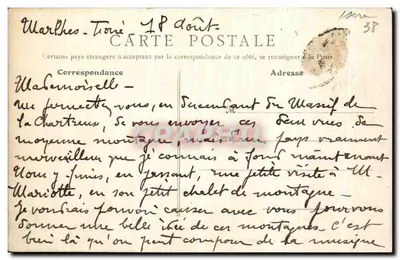 Marlhes - 18 août -
Isère
38
CARTE POSTALE
Certains pays étrangers n'acceptant pas la correspondance de ce côté, se renseigner à la Poste
Correspondance
Adresse
Mademoiselle -
me permettez vous, en descendant du Massif de
la Chartreuse, de vous envoyer ces deux vues de
moyenne montagne, mais un pays vraiment
merveilleux que je connais à fond maintenant
Nous y fîmes, en passant, une petite visite à M.
Mariotte, en son petit chalet de montagne -
Je voudrais pouvoir causer avec vous pour vous
donner une belle idée de ces montagnes. C'est
bien là qu'on peut composer de la musique